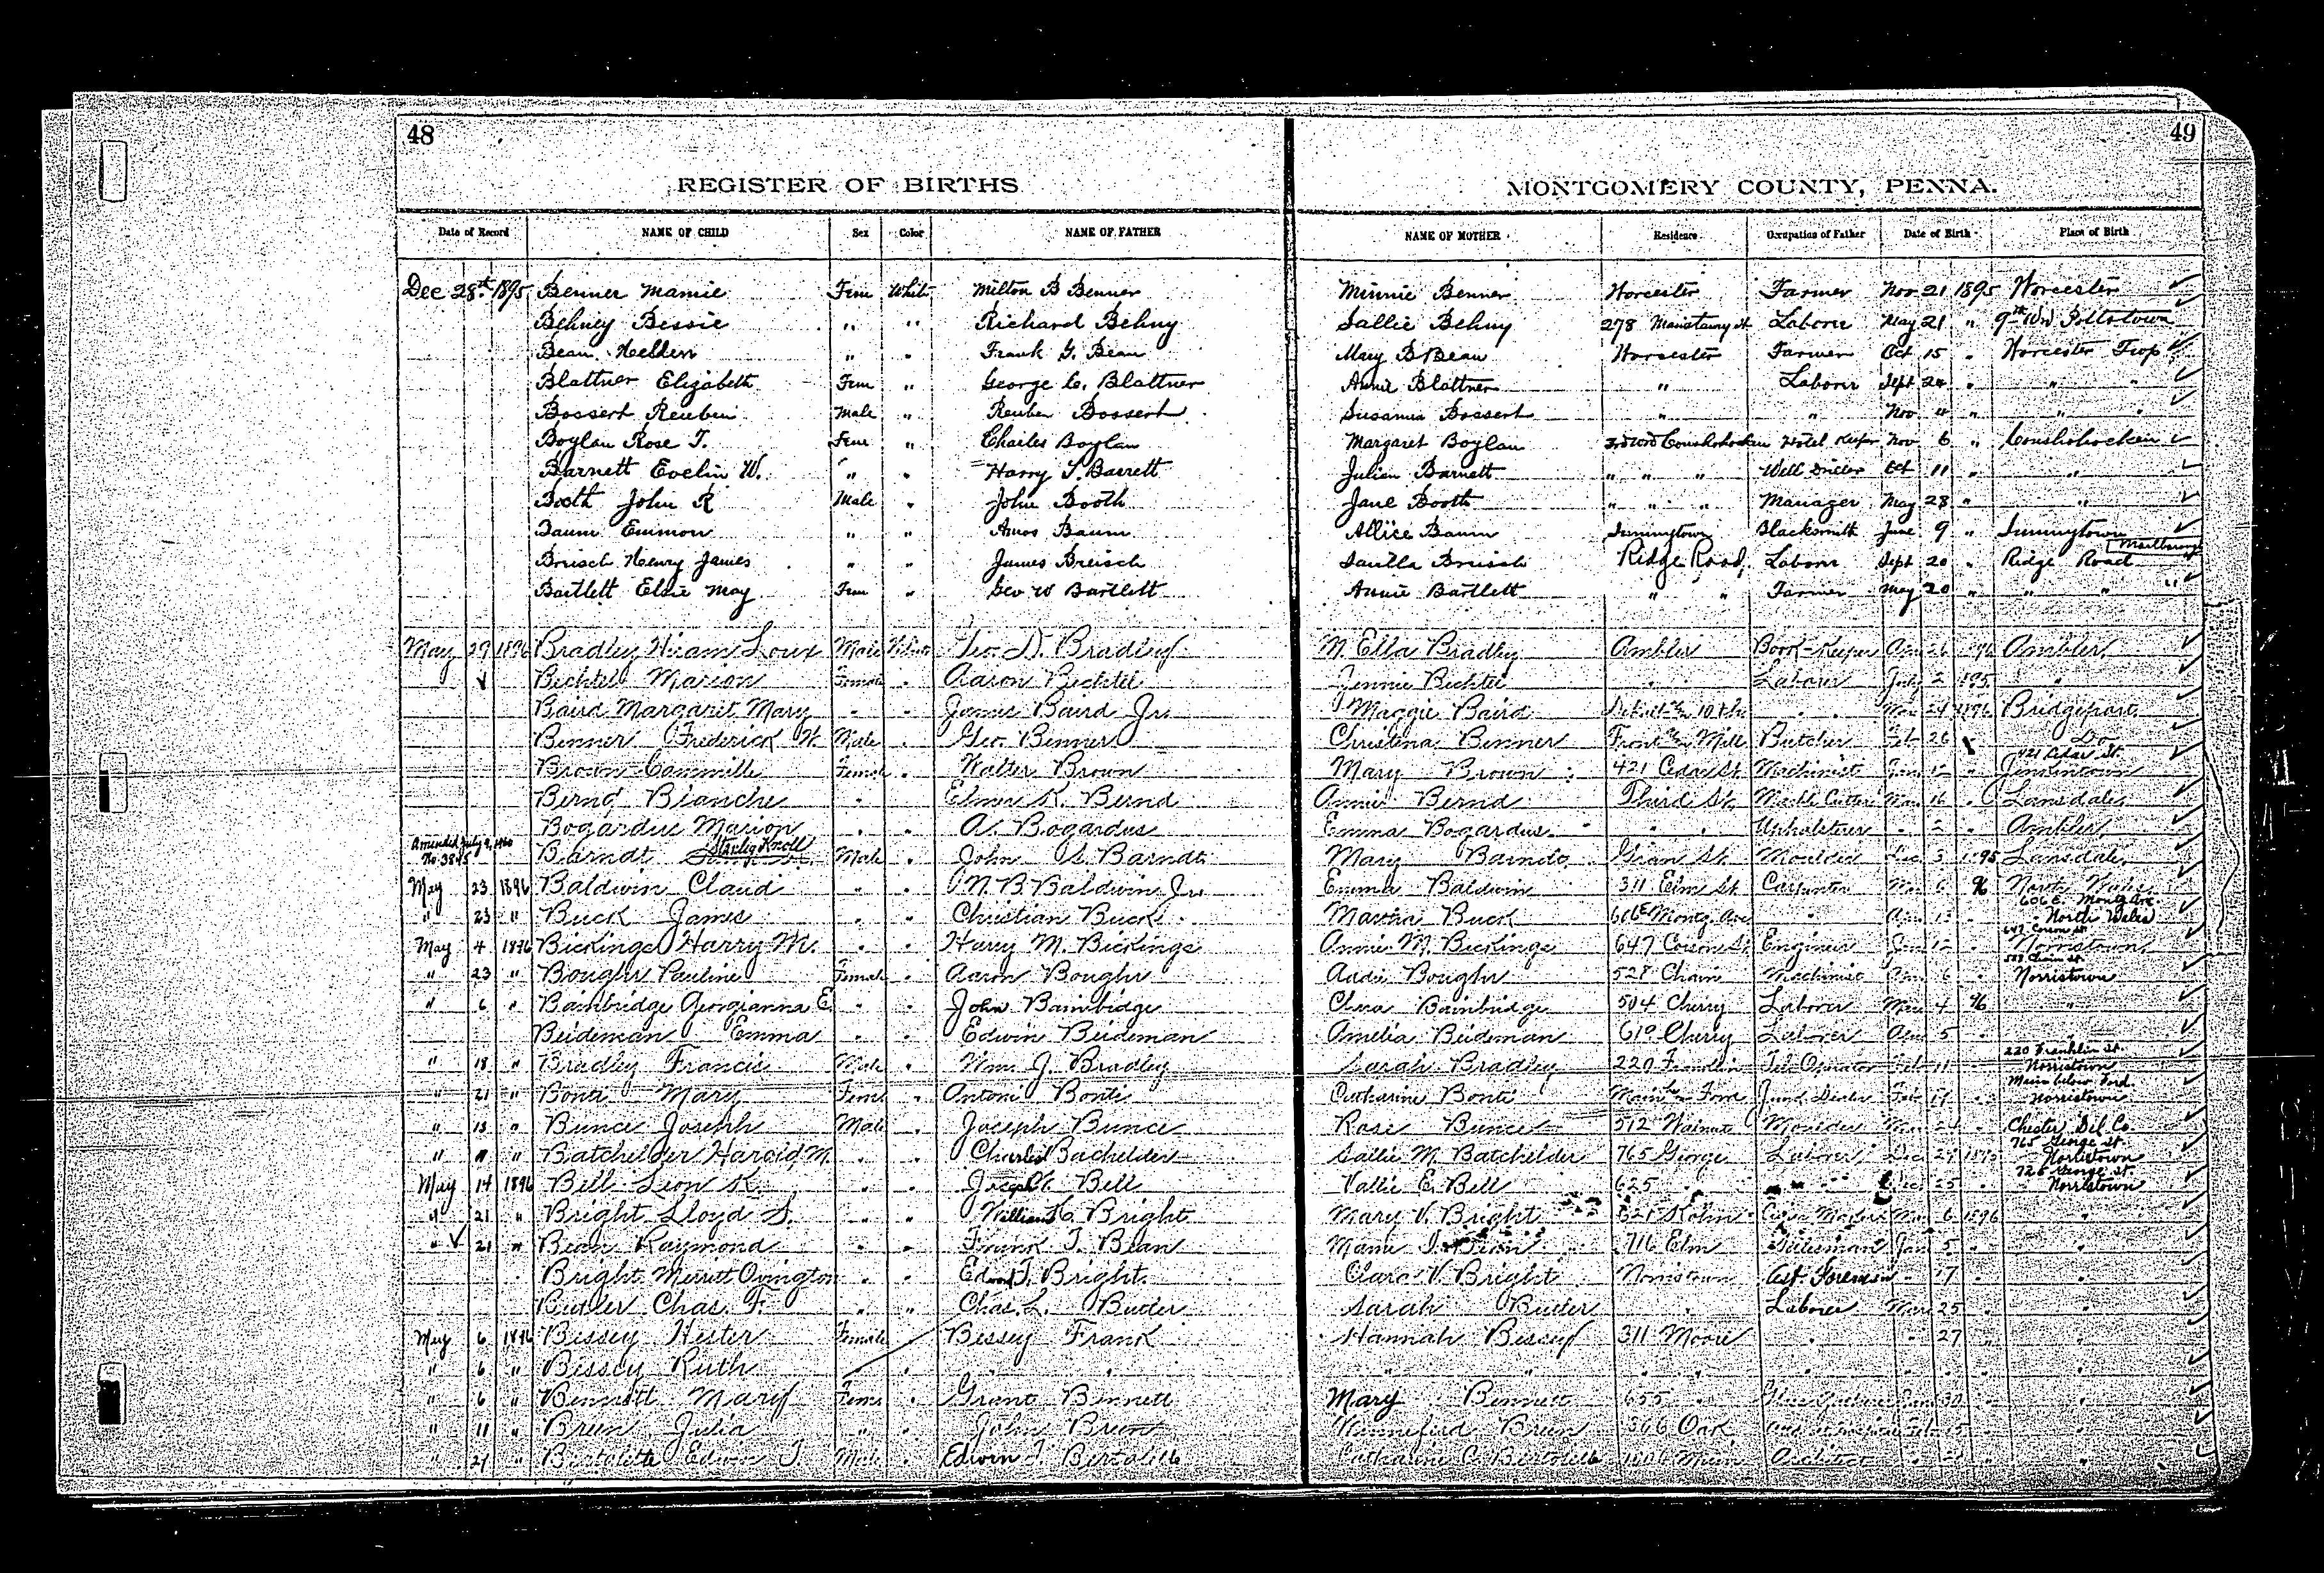 48
49
REGISTER OF BIRTHS
MONTGOMERY COUNTY, PENNA.
Date of Record NAME OF CHILD Sex Color NAME OF FATHER NAME OF MOTHER Residence Occupation of Father Date of Birth Place of Birth
Dec 28th 1895 Benner Mamie Fem White Milton B Benner Minnie Benner Worcester Farmer Nov 21 1895 Worcester
Behney Bessie " " Richard Behny Sallie Behny 278 Laborer May 21 " 9th Wd Pottstown
Bean Hellen " " Frank G. Bean Mary B Bean Worcester Farmer Oct 15 " Worcester Twp
Blattner Elizabeth Fem " George C. Blattner Annie Blattner " Laborer Sept 24 " " "
Bossert Reuben Male " Reuben Bossert Susanna Bossert " " Nov 4 " " "
Boylan Rose T. Fem " Charles Boylan Margaret Boylan 3rd Wrd Conshohocken Hotel Keeper Nov 6 " Conshohocken
Barnett Evelin W. " " Harry S. Barrett Julien Barnett " " " Well Driller Oct 11 " "
Booth John R Male " John Booth Jane Booth " " " Manager May 28 " "
Baum Emmon " " Amos Baum Allice Baum Sumneytown Blacksmith June 9 " Sumneytown
Marlborough
Breisch Henry James " " James Breisch Laborer Sept 20 " Ridge Road
Ridge Road,
Bartlett Elsie May Fem " Geo W Bartlett Annie Bartlett " " Farmer May 20 " " " "
May 27 1896 Bradley Hiram Loux Male White Geo. D. Bradley M. Ella Bradley Ambler Book-Keeper 26 96 Ambler
Bechtel Marion Female " Aaron Bechtel Jennie Bechtel " Laborer July 2 1895 "
Baird Margaret Mary " " James Baird Jr. Maggie Baird " Mar 24 1896 Bridgeport
Benner Frederick W. Male " Geo. Benner Christena Benner Front Mill Butcher Feb 26 Do
421 Cedar St.
Brown Cammille Female " Walter Brown Mary Brown 421 Cedar St. Machinist Jan 12 " Jenkintown
Bernd Blanche " Elmer K. Bernd Annie Bernd Third St. Marble Cutter Mar 16 " Lansdale
Bogardus Marion " " A. Bogardus Emma Bogardus " " Upholsterer " 2 " Ambler
Amended July 9, 1940
No. 3845
Stanley Knoll
Barndt Male " John S. Barndt Mary Barndt St. Moulder Dec 3 1895 Lansdale
May 23 1896 Baldwin Claud " " N. B. Baldwin Jr. Emma Baldwin 311 Elm St. Carpenter Mar 6 96 North Wales
606 E. Montg Ave.
" 23 " Buck James " " Christian Buck Martha Buck 606 E Montg. Ave " 13 " North Wales
647 Corson St.
May 4 1896 Bickings Harry M. " " Harry M. Bickings Annie M. Bickings 647 Corson St Engineer Jan 12 " Norristown
528 Chain st.
" 23 " Boughr Pauline Female " Aaron Boughr Boughr 528 Chain Machinist 6 " Norristown
" 6 " Bainbridge Georgianna E. " " John Bainbridge Clara Bainbridge 504 Cherry Laborer Mar 4 96 "
Beideman Emma " " Edwin Beideman Amelia Beideman 610 Cherry Laborer 5 " "
220 Franklin St.
" 18 " Bradley Francis Male " Wm. J. Bradley Sarah Bradley 220 Franklin Tel. Operator Feb 11 " Norristown
Main below Ford
" 21 " Bonti Mary Fem " Antoni Bonti Catharine Bonti Main Ford Junk Dealer Feb 17 " Norristown
" 13 " Bunce Joseph Male " Joseph Bunce Rose Bunce 512 Walnut Moulder Mar 24 " Chester Del. Co.
765 George St.
" " " Batchelder Harold M. " " Charles Bachelder Sallie M. Batchelder 765 George Laborer Dec 29 1895 Norristown
726 George St.
May 14 1896 Bell Leon K. " " Joseph C. Bell Vallie E. Bell 625 " Dec 25 " Norristown
" 21 " Bright Lloyd S. " " William C. Bright Mary V. Bright 621 Kohn Mar 6 1896 "
" 21 " Bean Raymond " " Frank T. Bean Mame T. Bean 716 Elm Jan 5 " "
Bright Merritt Ovington " " Edward T. Bright Clara V. Bright Norristown Ast. Foreman " 17 " "
Butler Chas. F. " " Chas. L. Butler Sarah Butler " Laborer Mar 25 " "
May 6 1896 Bissey Hester Female " Bissey Frank Hannah Bissey 311 Moore " " 27 " "
" 6 " Bissey Ruth " " " " " " " " "
" 6 " Bennett Mary Fem " Grant Bennett Mary Bennett 655 " Jan 30 " "
" 11 " Breen Julia " " John Breen Winnefred Breen 566 Oak Feb 15 " "
" 21 " Bertolette Edwin T. Male " Edwin T. Bertolette Catharine C. Bertolette Main Architect " 21 " "